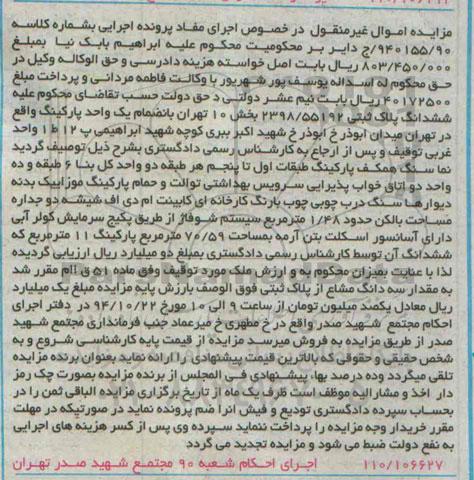 مزایده اموال غیرمنقول در خصوص اجرای مفاد پرونده اجرایی بشماره کلاسه
۹۴۰۱۵۵/۹۰/ج دایر بر محکومیت محکوم علیه ابراهیم بابک نیا بمبلغ
۸۰۳/۴۵۰/۰۰۰ ریال بابت اصل خواسته هزینه دادرسی و حق الوکاله وکیل در
حق محکوم له اسداله یوسف پور شهرپور با وکالت فاطمه مردانی و پرداخت مبلغ
۴۰۱۷۲۵۰۰ ریال بابت نیم عشر دولتی د حق دولت حسب تقاضای محکوم علیه
ششدانگ پلاک ثبتی ۲۳۹۸/۵۵۱۹۲ بخش ۱۰ تهران بانضمام یک واحد پارکینگ واقع
در تهران میدان ابوذر خ ابوذر خ شهید اکبر ببری کوچه شهید ابراهیمی پ ۱۲ ط۱ واحد
غربی توقیف و پس از ارجاع به کارشناس رسمی دادگستری بشارح ذیل توصیف گردید
نما سنگ همکف پارکینگ طبقات اول تا پنجم هر طبقه دو واحد کل بنا ۶ طبقه و ده
واحد دو اتاق خواب پذیرایی سرویس بهداشتی توالت و حمام پارکینگ موزاییک بدنه
دیوارها سنگ درب چوبی چوب بارنگ کارخانه ای کابینت ام دی اف شیشه دو جداره
مساحت بالکن حدود ۱/۴۸ مترمربع سیستم شوفاژ از طریق پکیج سرمایش کولر آبی
دارای آسانسور اسکلت بتن آرمه بمساحت ۷۶/۵۹ مترمربع پارکینگ ۱۱ مترمربع که
ششدانگ آن توسط کارشناس رسمی دادگستری بمبلغ دو میلیارد ریال ارزیابی گردیده
لذا با عنایت بمیزان محکوم به و ارزش ملک مورد توقیف وفق ماده ۵۱ ق اام مقرر شد
به مقدار سه دانگ مشاع از پلاک ثبتی فوق الوصف بارزش پایه مزایده مبلغ یک میلیارد
ریال معادل یکصد میلیون تومان از ساعت ۹ الی ۱۰ مورخ ۹۴/۱۰/۲۲ در دفتر اجرای
احکام مجتمع شهید صدر واقع در خ مطهری خ میرعماد جنب فرمانداری مجتمع شهید
صدر از طریق مزایده به فروش میرسد مزایده از قیمت پایه کارشناسی شروع و به
شخص حقیقی و حقوقی که بالاترین قیمت پیشنهادی را ارائه نماید بعنوان برنده مزایده
تلقی میگردد وده درصد بهاء پیشنهادی فی المجلس از برنده مزایده بصورت چک رمز
دار اخذ و مشارالیه موظف است ظرف یک ماه از تاریخ برگزاری مزایده الباقی ثمن را در
بحساب سپرده دادگستری تودیع و فیش انرا ضم پرونده نماید در صورتیکه در مهلت
مقرر خریدار وجه مزایده را پرداخت ننماید سپرده وی پس از کسر هزینه های اجرایی
به نفع دولت ضبط می شود و مزایده تجدید می گردد
۱۱۰/۱۰۶۶۲۷ اجرای احکام شعبه ۹۰ مجتمع شهید صدر تهران